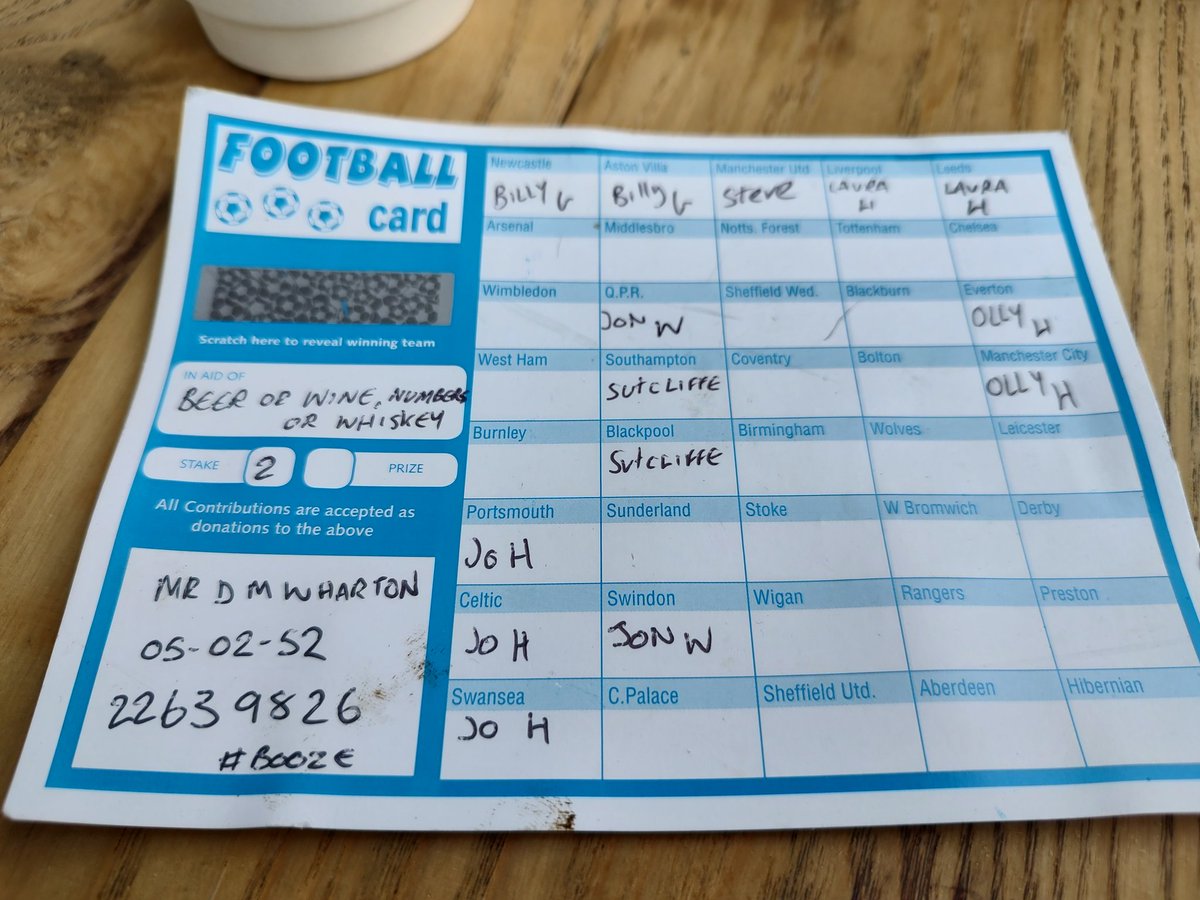 FOOTBALL
card
Scratch here to reveal winning team
IN AID OF
BEER OF WINE, NUMBERS
OR WHISKEY
STAKE 2 PRIZE
All Contributions are accepted as
donations to the above
MR D M WHARTON
05-02-52
22639826
#BOOZE
Newcastle Aston Villa Manchester Utd Liverpool Leeds
BILLY G Billy G Steve LAURA H LAURA H
Arsenal Middlesbro Notts. Forest Tottenham Chelsea
Wimbledon Q.P.R. Sheffield Wed. Blackburn Everton
JON W OLLY H
West Ham Southampton Coventry Bolton Manchester City
SUTCLIFFE OLLY H
Burnley Blackpool Birmingham Wolves Leicester
SUTCLIFFE
Portsmouth Sunderland Stoke W Bromwich Derby
JO H
Celtic Swindon Wigan Rangers Preston
JO H JON W
Swansea C.Palace Sheffield Utd. Aberdeen Hibernian
JO H